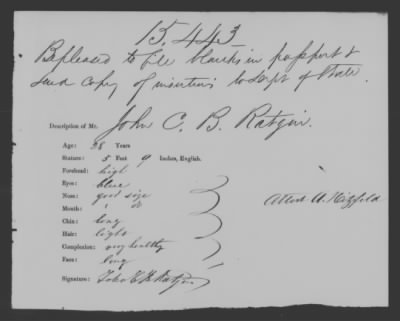 15,443
Be pleased to fill blanks in passport &
send copy of insertions to Dept of State.
Description of Mr. John C. B. Ratzin.
Age: 28 Years
Stature: 5 Feet 9 Inches, English.
Forehead: high
Eyes: blue
Nose: good size
Mouth: " do
Chin: long
Hair: light
Complexion: very healthy
Face: long
Signature: John C. B.